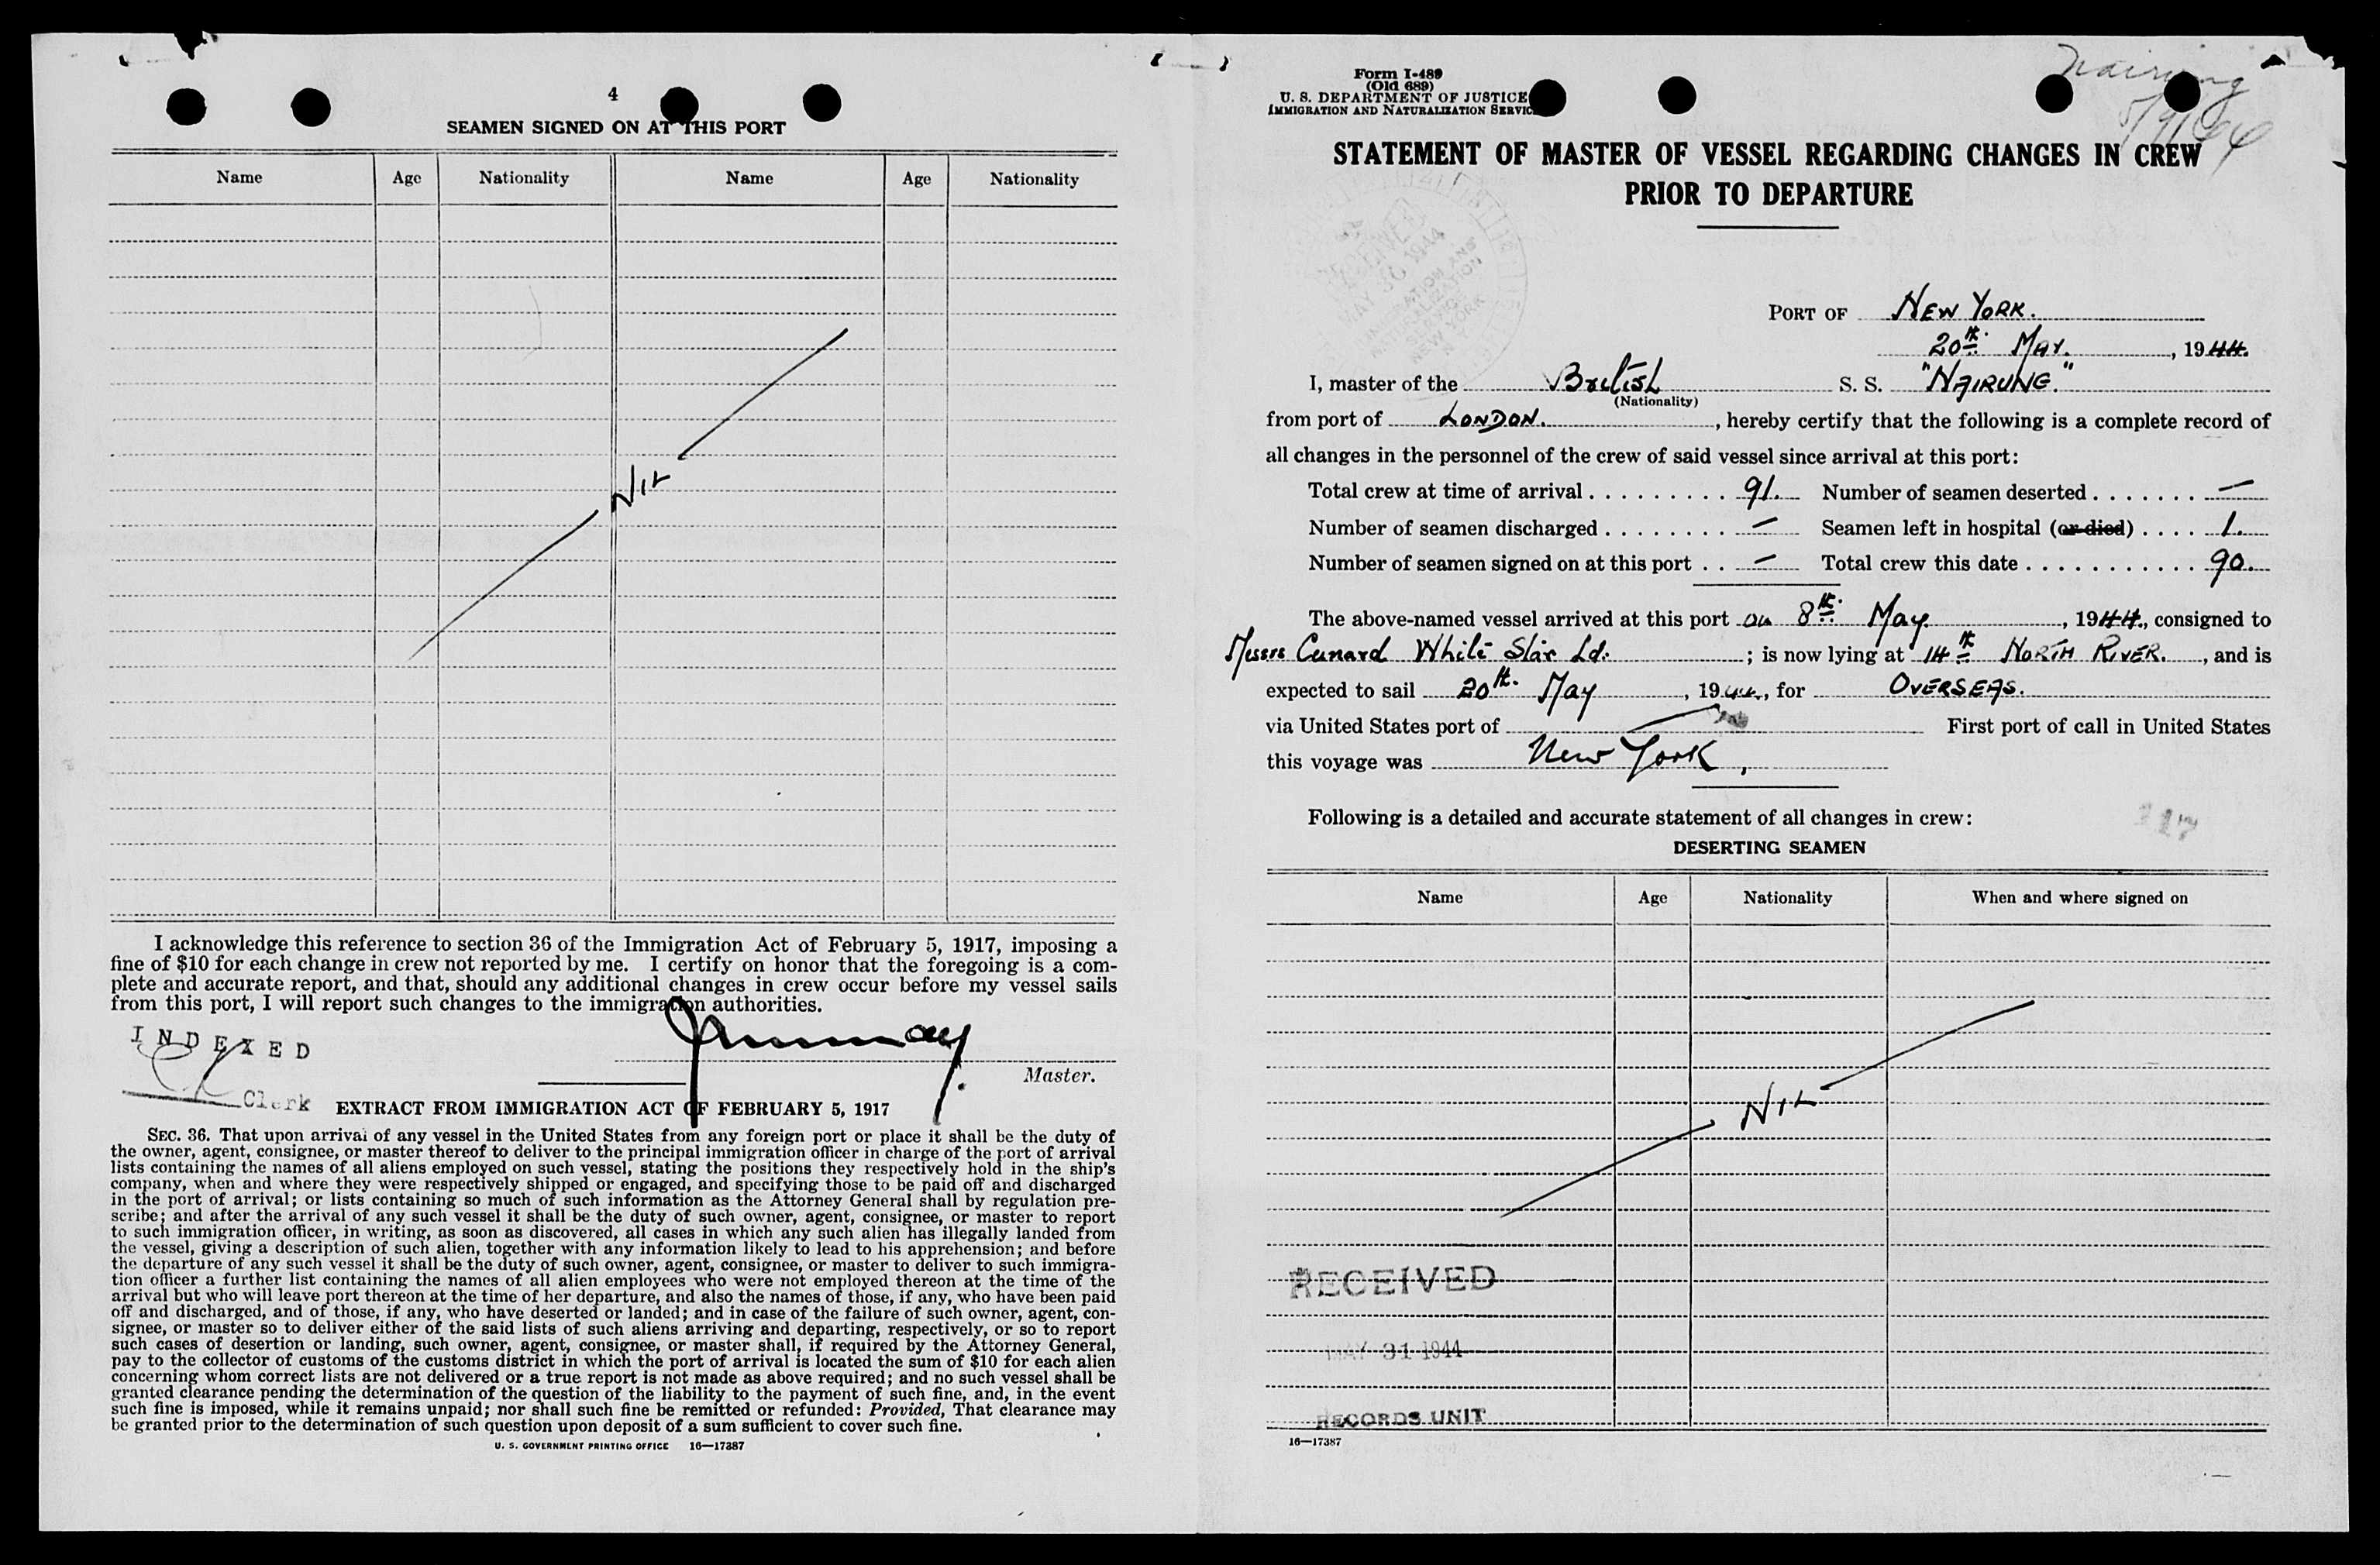 4
SEAMEN SIGNED ON AT THIS PORT
Name Age Nationality Name Age Nationality
NIL
I acknowledge this reference to section 36 of the Immigration Act of February 5, 1917, imposing a
fine of $10 for each change in crew not reported by me. I certify on honor that the foregoing is a com-
plete and accurate report, and that, should any additional changes in crew occur before my vessel sails
from this port, I will report such changes to the immigration authorities.
INDEXED
Master.
Clerk
EXTRACT FROM IMMIGRATION ACT OF FEBRUARY 5, 1917
SEC. 36. That upon arrival of any vessel in the United States from any foreign port or place it shall be the duty of
the owner, agent, consignee, or master thereof to deliver to the principal immigration officer in charge of the port of arrival
lists containing the names of all aliens employed on such vessel, stating the positions they respectively hold in the ship's
company, when and where they were respectively shipped or engaged, and specifying those to be paid off and discharged
in the port of arrival; or lists containing so much of such information as the Attorney General shall by regulation pre-
scribe; and after the arrival of any such vessel it shall be the duty of such owner, agent, consignee, or master to report
to such immigration officer, in writing, as soon as discovered, all cases in which any such alien has illegally landed from
the vessel, giving a description of such alien, together with any information likely to lead to his apprehension; and before
the departure of any such vessel it shall be the duty of such owner, agent, consignee, or master to deliver to such immigra-
tion officer a further list containing the names of all alien employees who were not employed thereon at the time of the
arrival but who will leave port thereon at the time of her departure, and also the names of those, if any, who have been paid
off and discharged, and of those, if any, who have deserted or landed; and in case of the failure of such owner, agent, con-
signee, or master so to deliver either of the said lists of such aliens arriving and departing, respectively, or so to report
such cases of desertion or landing, such owner, agent, consignee, or master shall, if required by the Attorney General,
pay to the collector of customs of the customs district in which the port of arrival is located the sum of $10 for each alien
concerning whom correct lists are not delivered or a true report is not made as above required; and no such vessel shall be
granted clearance pending the determination of the question of the liability to the payment of such fine, and, in the event
such fine is imposed, while it remains unpaid; nor shall such fine be remitted or refunded: Provided, That clearance may
be granted prior to the determination of such question upon deposit of a sum sufficient to cover such fine.
U. S. GOVERNMENT PRINTING OFFICE 16—17387
Form I-489
(Old 689)
U. S. DEPARTMENT OF JUSTICE
IMMIGRATION AND NATURALIZATION SERVICE
Nairung
5/9/44
STATEMENT OF MASTER OF VESSEL REGARDING CHANGES IN CREW
PRIOR TO DEPARTURE
RECEIVED
MAY 30 1944
IMMIGRATION AND
NATURALIZATION
SERVICE
NEW YORK
PORT OF NEW YORK.
20th May, 1944.
I, master of the British S. S. "NAIRUNG."
(Nationality)
from port of LONDON., hereby certify that the following is a complete record of
all changes in the personnel of the crew of said vessel since arrival at this port:
Total crew at time of arrival . . . . . . . . . 91. Number of seamen deserted . . . . . . . —
Number of seamen discharged . . . . . . . . — Seamen left in hospital (or died) . . . . 1.
Number of seamen signed on at this port . . — Total crew this date . . . . . . . . . . . . 90.
The above-named vessel arrived at this port on 8th May, 1944., consigned to
Messrs Cunard White Star Ld. ; is now lying at 14th NORTH RIVER., and is
expected to sail 20th May, 1944, for OVERSEAS.
via United States port of — First port of call in United States
this voyage was New York,
Following is a detailed and accurate statement of all changes in crew:
117
DESERTING SEAMEN
Name Age Nationality When and where signed on
NIL
RECEIVED
MAY 31 1944
RECORDS UNIT
16—17387